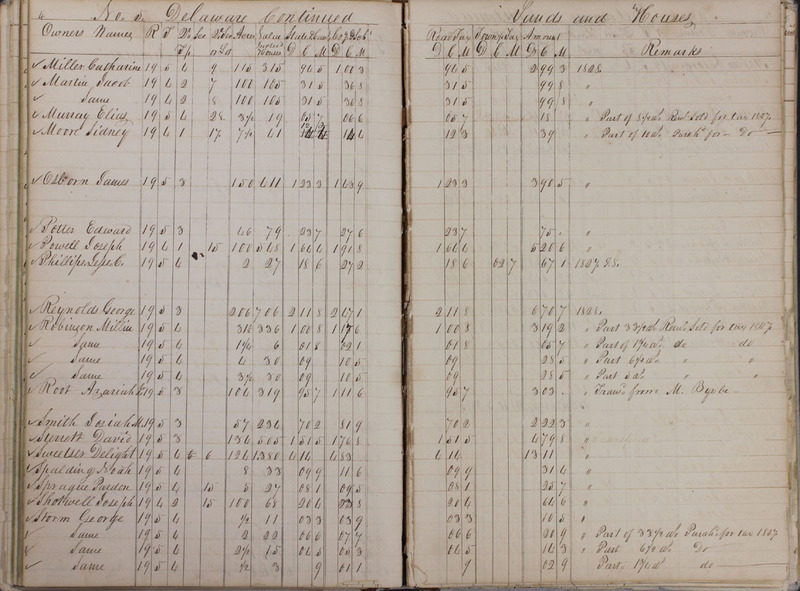 4 No. 5. Delaware Continued Lands and Houses
Owners Names R T Qr Sec Acres Value State Road Tax Township Tax Amount Remarks
Tp Lot Houses D C M D C M D C M D C M
Miller Catharine 19 5 4 9 115 315 94 5 1 00 3 94 5 2 99 3 1828
Martin Jacob 19 4 2 7 100 105 31 5 36 8 31 5 99 8 "
Same 19 4 2 8 100 105 31 5 36 8 31 5 99 8 "
Murray Elias 19 5 4 19 05 7 06 6 05 7 18 " Part of Sold for tax 1827.
Moore Sidney 19 4 1 17 41 14 4 12 3 39 " Part of 10 a. Purch. for Do
Osborn James 19 5 3 150 411 1 23 3 1 43 9 1 23 3 3 90 5 "
Potter Edward 19 5 3 46 79 23 7 27 6 23 7 75 . "
Powell Joseph 19 4 1 15 100 548 1 64 4 1 91 8 1 64 4 5 20 6 "
Phillips 19 5 4 2 27 18 6 27 2 18 6 02 7 67 1 1827
Reynolds George 19 5 3 206 706 2 11 8 2 47 1 2 11 8 6 70 7 1828.
Robinson 19 5 4 310 336 1 00 8 1 17 6 1 00 8 3 19 2 " Part 33 1/2 a. Sold for tax 1827
Same 19 5 4 6 01 8 02 1 01 8 05 7 " Part of do do
Same 19 5 4 4 30 09 10 5 09 28 5 " Part " "
Same 19 5 4 30 09 10 5 09 28 5 " Part 3 a. " "
Root Azariah 19 5 3 104 319 95 7 1 11 6 95 7 3 03 . " Trans. from M. Byxbe
Smith Josiah M. 19 5 3 57 234 70 2 81 9 70 2 2 22 3 "
Sterrett David 19 5 3 134 505 1 51 5 1 76 8 1 51 5 4 79 8 "
Sweetser Delight 19 5 4 6 124 1380 4 14 4 83 4 14 13 11 "
Spalding Noah 19 5 4 8 33 09 9 11 6 09 9 31 4 "
Sprague Pardon 19 5 4 15 5 27 08 1 09 5 08 1 25 7 "
Shotwell Joseph 19 4 2 15 100 68 20 4 23 8 20 4 64 6 "
Storm George 19 5 4 1/2 11 03 3 03 9 03 3 10 5 "
Same 19 5 4 2 22 06 6 07 7 06 6 20 9 " Part of 33 1/2 a. Purch. for tax 1827
Same 19 5 4 2 1/2 15 04 5 05 3 04 5 14 3 " Part Do
Same 19 5 4 1/2 3 9 01 1 9 02 9 Part do